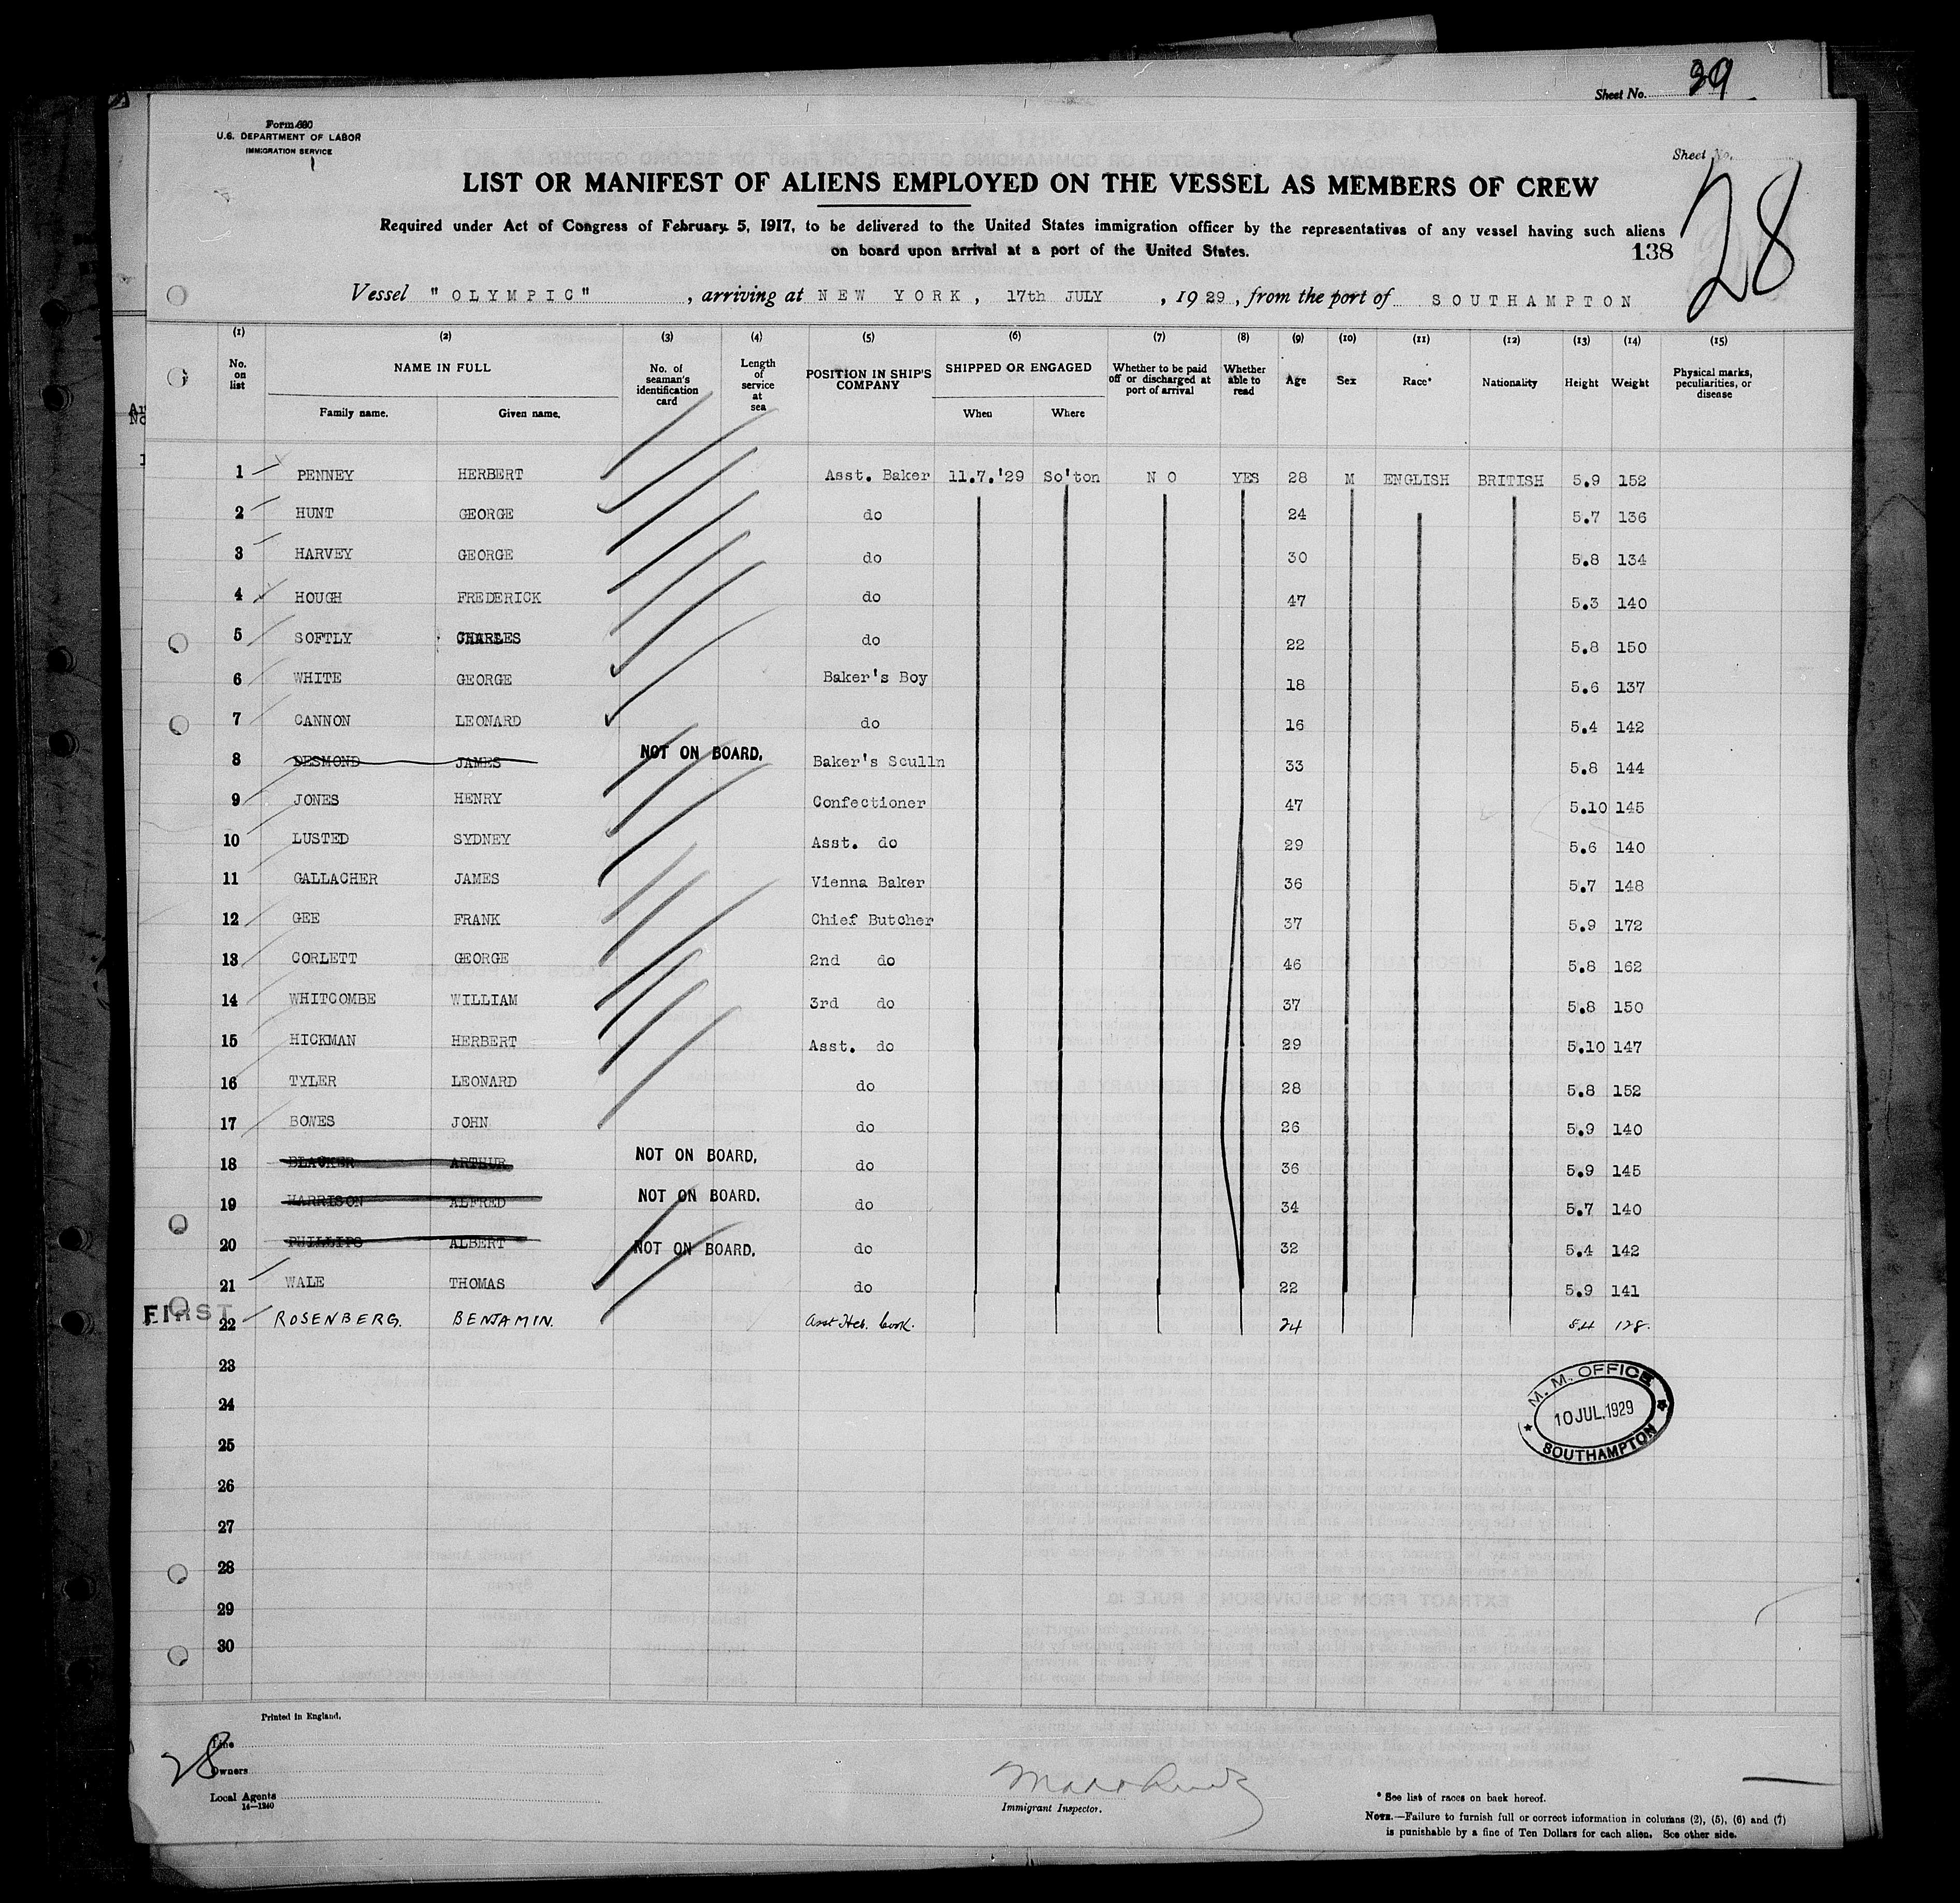 Sheet No. 39
Form 680
U.S. DEPARTMENT OF LABOR
IMMIGRATION SERVICE
Sheet No. 28
LIST OR MANIFEST OF ALIENS EMPLOYED ON THE VESSEL AS MEMBERS OF CREW
Required under Act of Congress of February 5, 1917, to be delivered to the United States immigration officer by the representatives of any vessel having such aliens
on board upon arrival at a port of the United States.
138
Vessel "OLYMPIC", arriving at NEW YORK, 17th JULY, 1929, from the port of SOUTHAMPTON
(1) (2) (3) (4) (5) (6) (7) (8) (9) (10) (11) (12) (13) (14) (15)
No. on list NAME IN FULL Family name. Given name. No. of seaman's identification card Length of service at sea POSITION IN SHIP'S COMPANY SHIPPED OR ENGAGED When Where Whether to be paid off or discharged at port of arrival Whether able to read Age Sex Race* Nationality Height Weight Physical marks, peculiarities, or disease
1 PENNEY HERBERT Asst. Baker 11.7.'29 So'ton NO YES 28 M ENGLISH BRITISH 5.9 152
2 HUNT GEORGE do 24 5.7 136
3 HARVEY GEORGE do 30 5.8 134
4 HOUGH FREDERICK do 47 5.3 140
5 SOFTLY CHARLES do 22 5.8 150
6 WHITE GEORGE Baker's Boy 18 5.6 137
7 CANNON LEONARD do 16 5.4 142
8 DESMOND JAMES NOT ON BOARD. Baker's Sculln 33 5.8 144
9 JONES HENRY Confectioner 47 5.10 145
10 LUSTED SYDNEY Asst. do 29 5.6 140
11 GALLACHER JAMES Vienna Baker 36 5.7 148
12 GEE FRANK Chief Butcher 37 5.9 172
13 CORLETT GEORGE 2nd do 46 5.8 162
14 WHITCOMBE WILLIAM 3rd do 37 5.8 150
15 HICKMAN HERBERT Asst. do 29 5.10 147
16 TYLER LEONARD do 28 5.8 152
17 BOWES JOHN do 26 5.9 140
18 BLACKER ARTHUR NOT ON BOARD. do 36 5.9 145
19 HARRISON ALFRED NOT ON BOARD. do 34 5.7 140
20 PHILLIPS ALBERT NOT ON BOARD. do 32 5.4 142
21 WALE THOMAS do 22 5.9 141
FIRST
22 ROSENBERG. BENJAMIN. Asst Heb. Cook. 24 5.4 128.
23
24
25
26
27
28
29
30
M. M. OFFICE
10 JUL. 1929
SOUTHAMPTON
Printed in England.
28
Line
Owners
Local Agents
14—1240
Immigrant Inspector.
* See list of races on back hereof.
NOTE.—Failure to furnish full or correct information in columns (2), (5), (6) and (7)
is punishable by a fine of Ten Dollars for each alien. See other side.